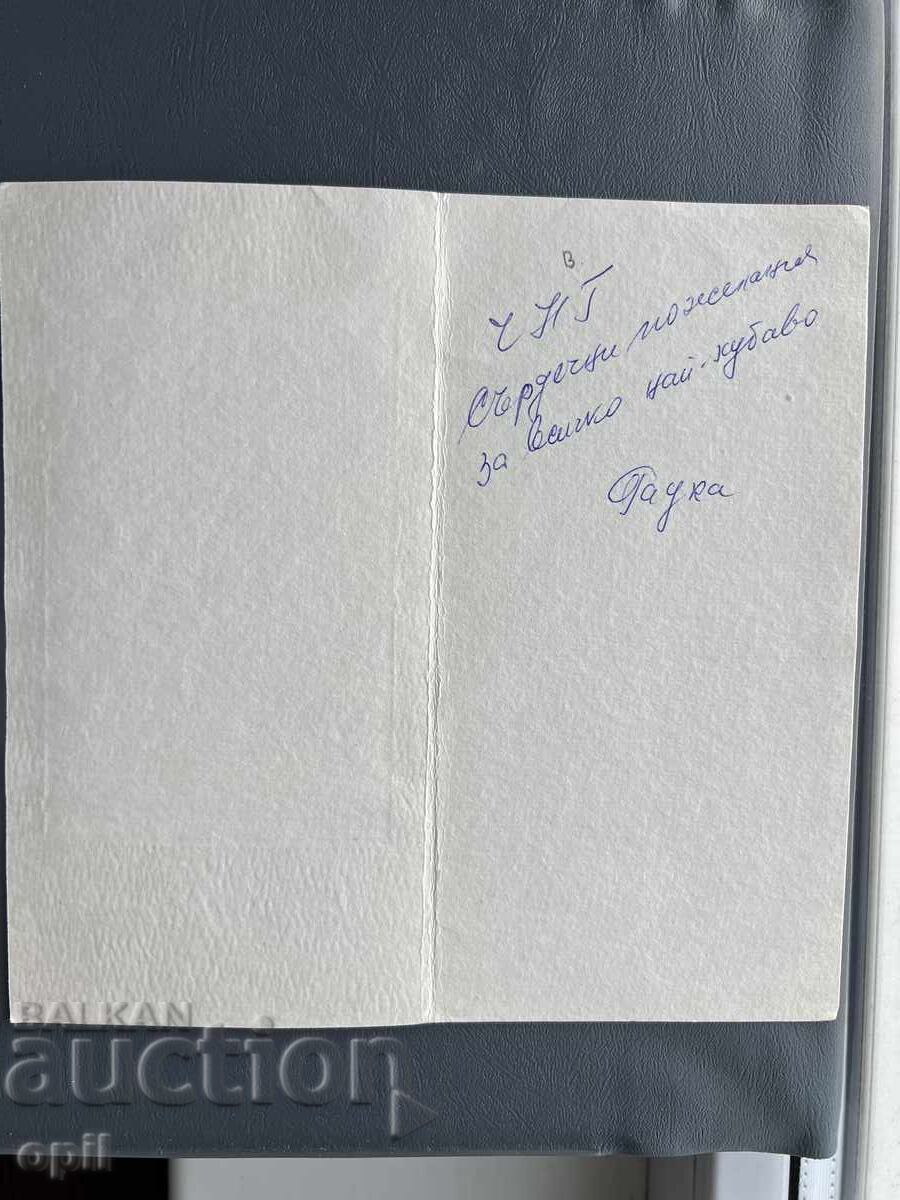 в
ЧНГ
Сърдечни пожелания
за всичко най-хубаво
BALKAN
auction
opil